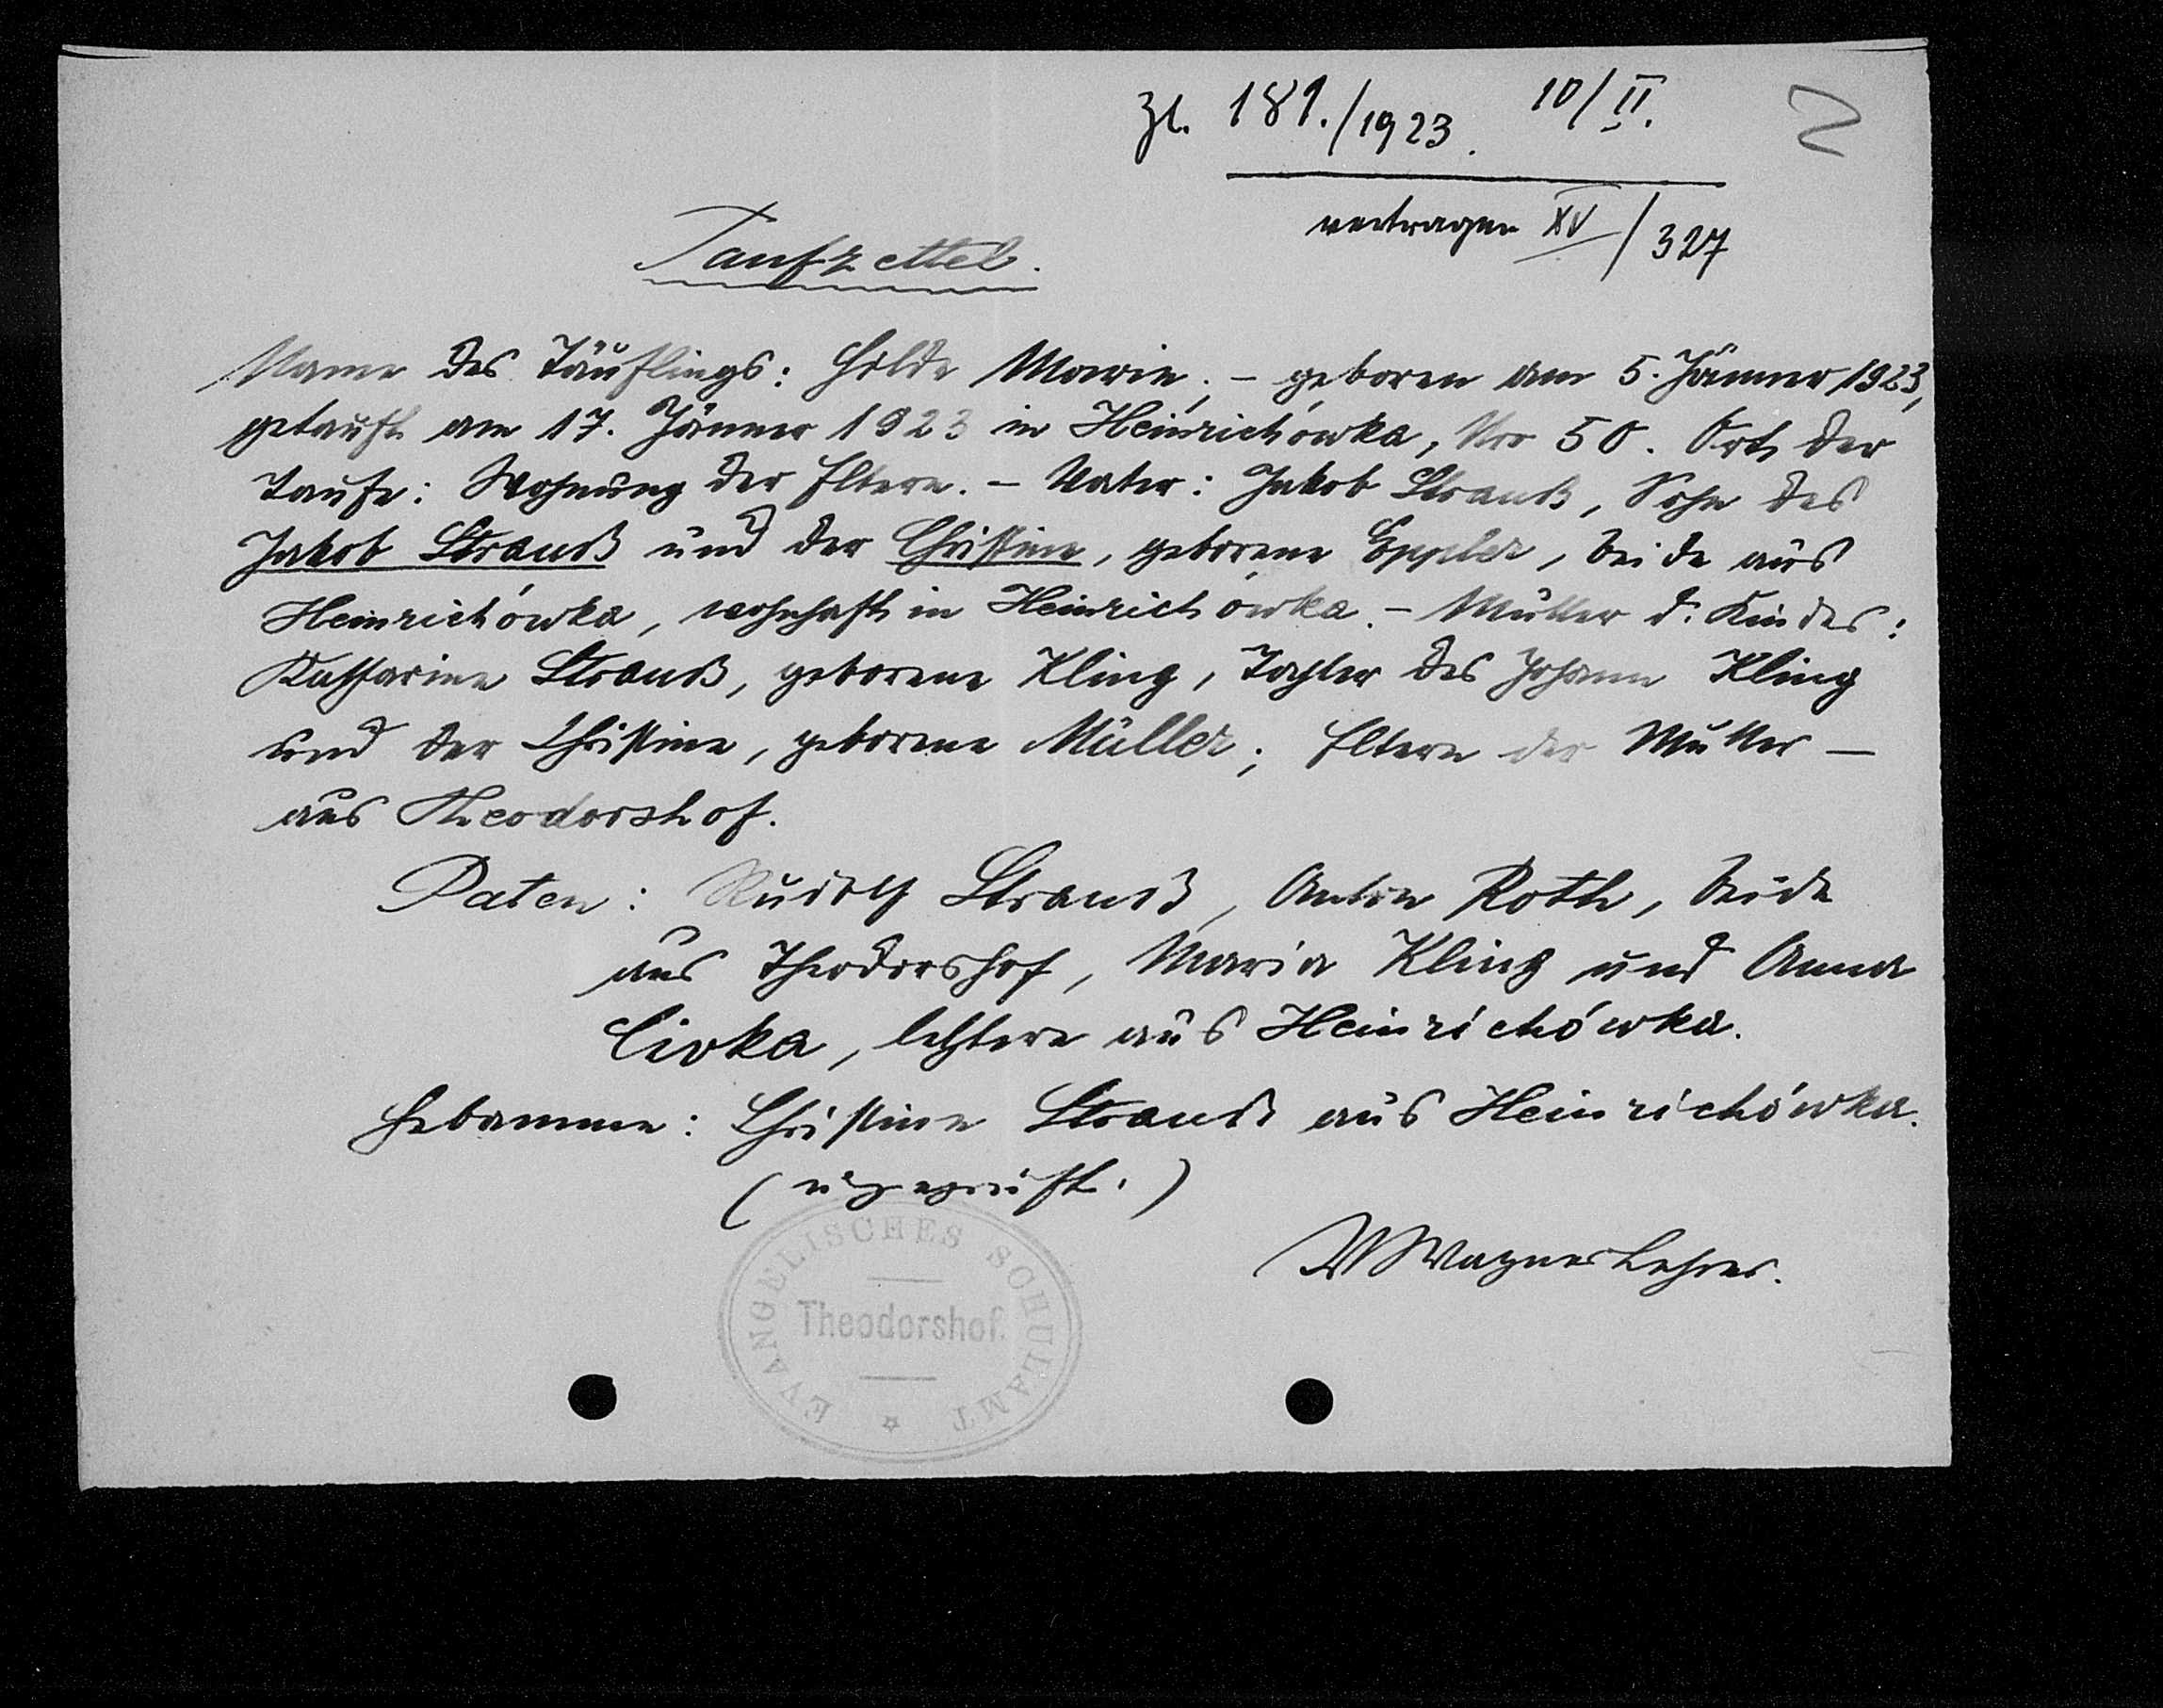 Zl. 181./1923. 10/II.
2
vertragen XV/327
Taufzettel.
Name des Täuflings: Hilde Marie; – geboren am 5. Jänner 1923,
getauft am 17. Jänner 1923 in Heinrichówka, Nro 50. Ort der
Taufe: Wohnung der Eltern. – Vater: Jakob Strauß, Sohn des
Jakob Strauß und der Christine, geborene Eppler, beide aus
Heinrichówka, wohnhaft in Heinrichówka. – Mutter d. Kindes:
Katharine Strauß, geborene Kling, Tochter des Johann Kling
und der Christine, geborene Müller; Eltern der Mutter –
aus Theodorshof.
Paten: Rudolf Strauß, Anton Roth, beide
aus Theodorshof, Maria Kling und Anna
Civka, letztere aus Heinrichówka.
Hebamme: Christine Strauß aus Heinrichówka.
(ungeprüft.)
W Wagner Lehrer.
EVANGELISCHES SCHULAMT
Theodorshof.